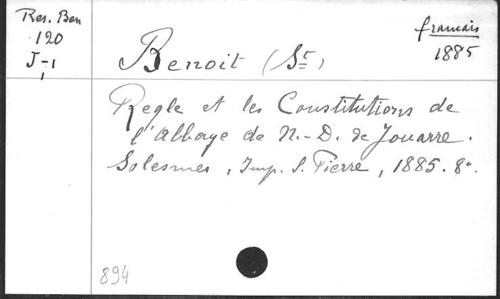 Res. Ben
120
J-1
1
français
1885
Benoit (St)
Regle et les Constitutions de
l'abbaye de N.-D. de Jouarre.
Solesmes, Imp. S. Pierre, 1885. 8°.
894